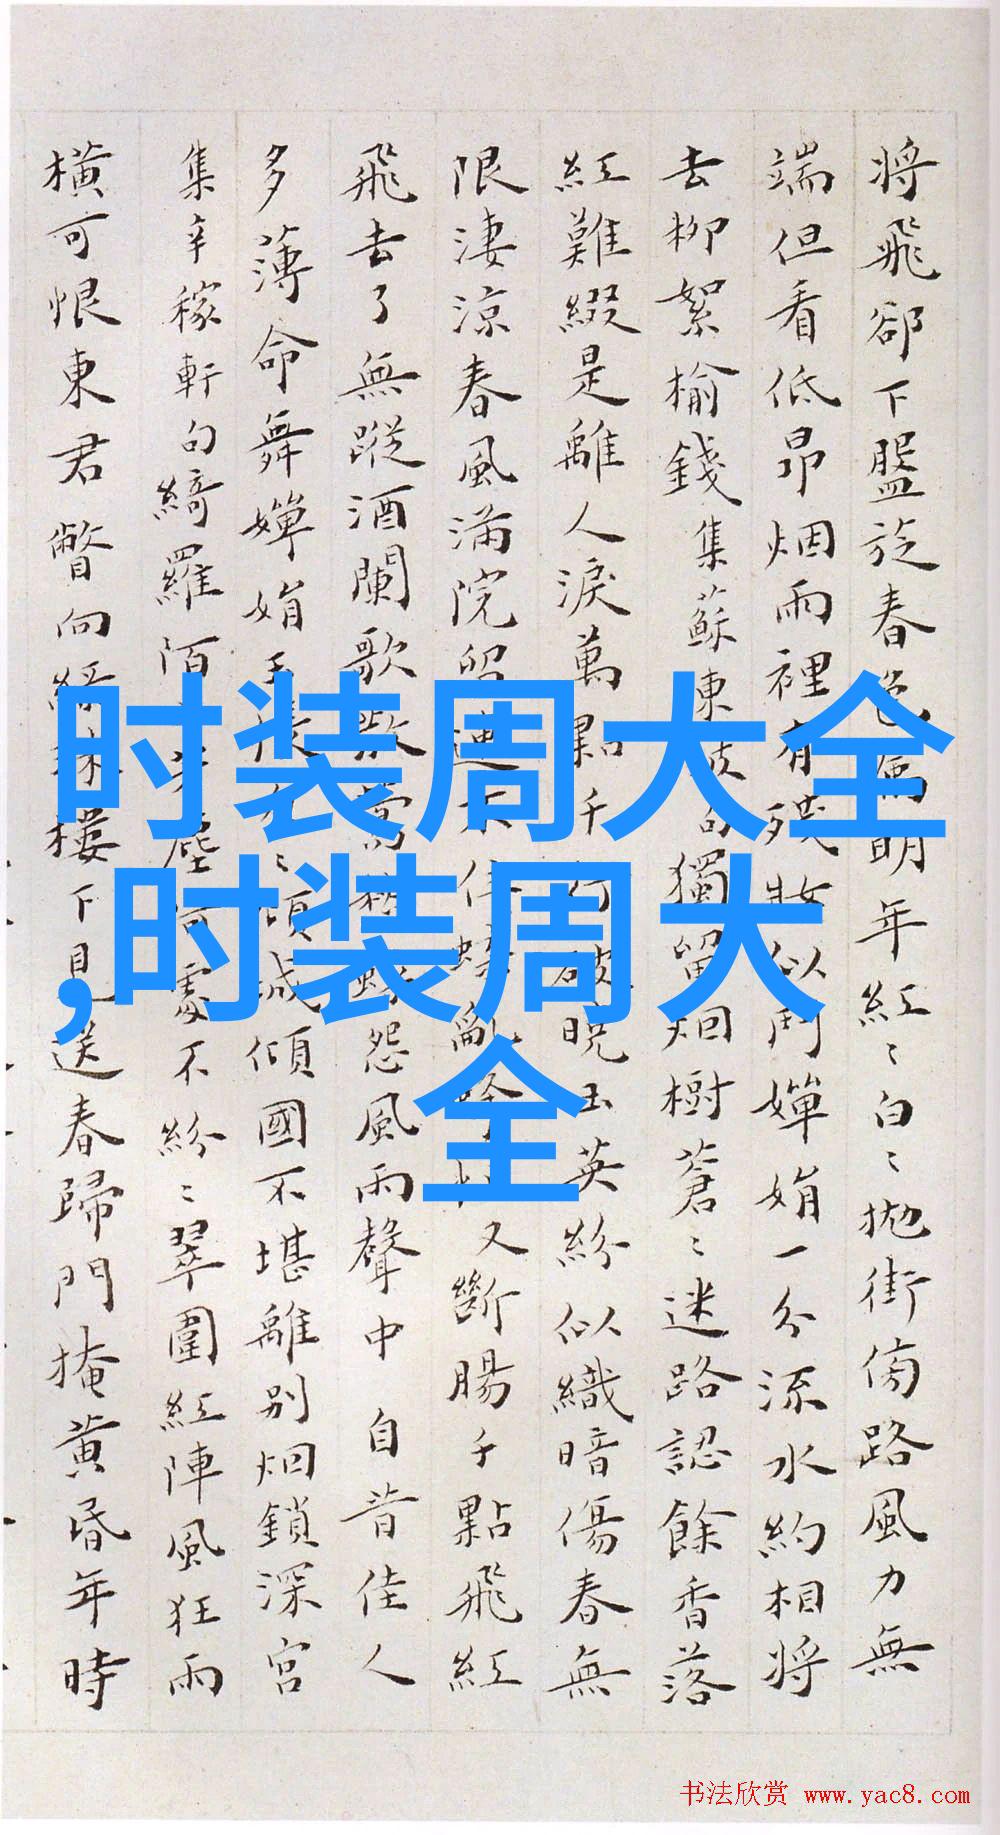 將飛卻下盤旋春色明年紅〻白〻拋街傍路風力無
端但看低昂烟雨裡有殘妝似鬥嬋娟一分流水約相將
去柳絮榆錢集蘇東坡句獨留烟樹蒼〻迷路認餘香落
紅難綴是離人淚萬點千行破晚玉英紛似織暗傷春無
限淒涼春風滿院留連不住蝶亂又斷腸千點飛紅
飛去了無蹤酒闌歌散鶯怨風雨聲中 自昔佳人
多薄命舞嬋娟〻傾城傾國不堪離別烟鎖深宮
集辛稼軒句綺羅陌芳塵何處不紛〻翠圍紅陣風狂雨
橫可恨東君瞥向綠珠樓下見送春歸門掩黃昏年時
时装周大全
,时装周大
全
书法欣赏 www.yac8.com